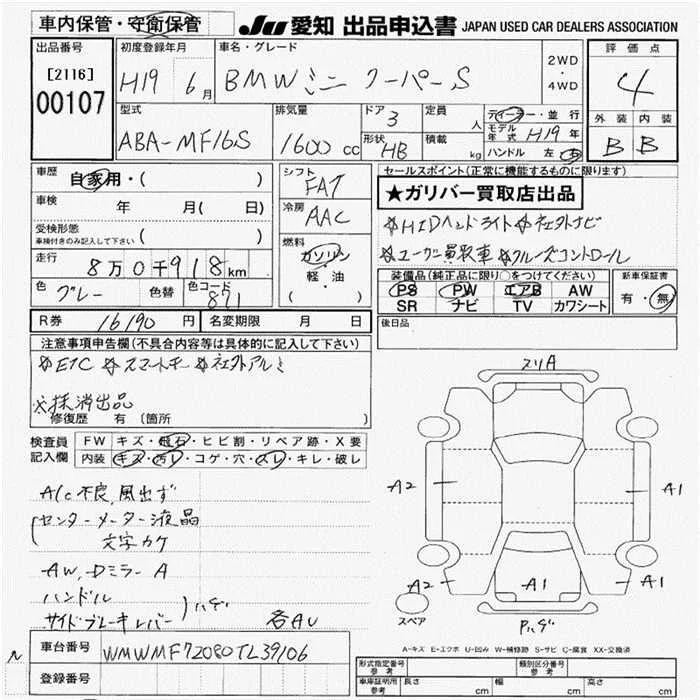 車内保管・守衛保管
JU 愛知 出品申込書 JAPAN USED CAR DEALERS ASSOCIATION
出品番号
[2116]
00107
初度登録年月
H19 6月
車名・グレード
BMWミニ クーパーS
2WD
・
4WD
評価点
4
外装 内装
B B
型式
ABA-MF16S
排気量
1600 cc
ドア 3
形状 HB
定員 人
積載 kg
ディーラー・並行
モデル年式 H19年
ハンドル 左・右
車歴
自家用・( )
車検 年 月( 日)
受検形態
車検付きのみ記入して下さい ( )
走行 8万0千918km
色 グレー 色替 色コード 871
シフト
FAT
冷房
AAC
燃料
ガソリン
・
軽・油
( )
セールスポイント(正常に機能するものに限ります)
★ガリバー買取店出品
☆HIDヘッドライト☆社外ナビ
☆ユーザー買取車☆クルーズコントロール
装備品(純正品に限り○をつけてください)
PS PW エアB AW
SR ナビ TV カワシート
新車保証書
有・無
R券 16190円 名変期限 月 日
後日品
注意事項申告欄(不具合内容等は具体的に記入して下さい)
☆ETC ☆スマートキー ☆社外アルミ
※抹消出品
修復歴 有 (箇所 )
検査員記入欄
FW キズ・飛石・ヒビ割・リペア跡・X要
内装 キズ・汚レ・コゲ・穴・スレ・キレ・破レ
A/C不良、風出ず
センターメーター液晶
文字カケ
AW、Dミラー A
ハンドル
サイドブーキレバー
ハゲ
各AU
スリA
A2
A1
A2
A1
A1
Pハゲ
スペア
A-キズ E-エクボ U-凹み W-補修跡 S-サビ C-腐食 XX-交換済
車台番号 WMWMF72080TL39106
登録番号
形式指定番号
参考
類別区分番号
参考
車庫証明用
参考
長さ cm 幅 cm 高さ cm